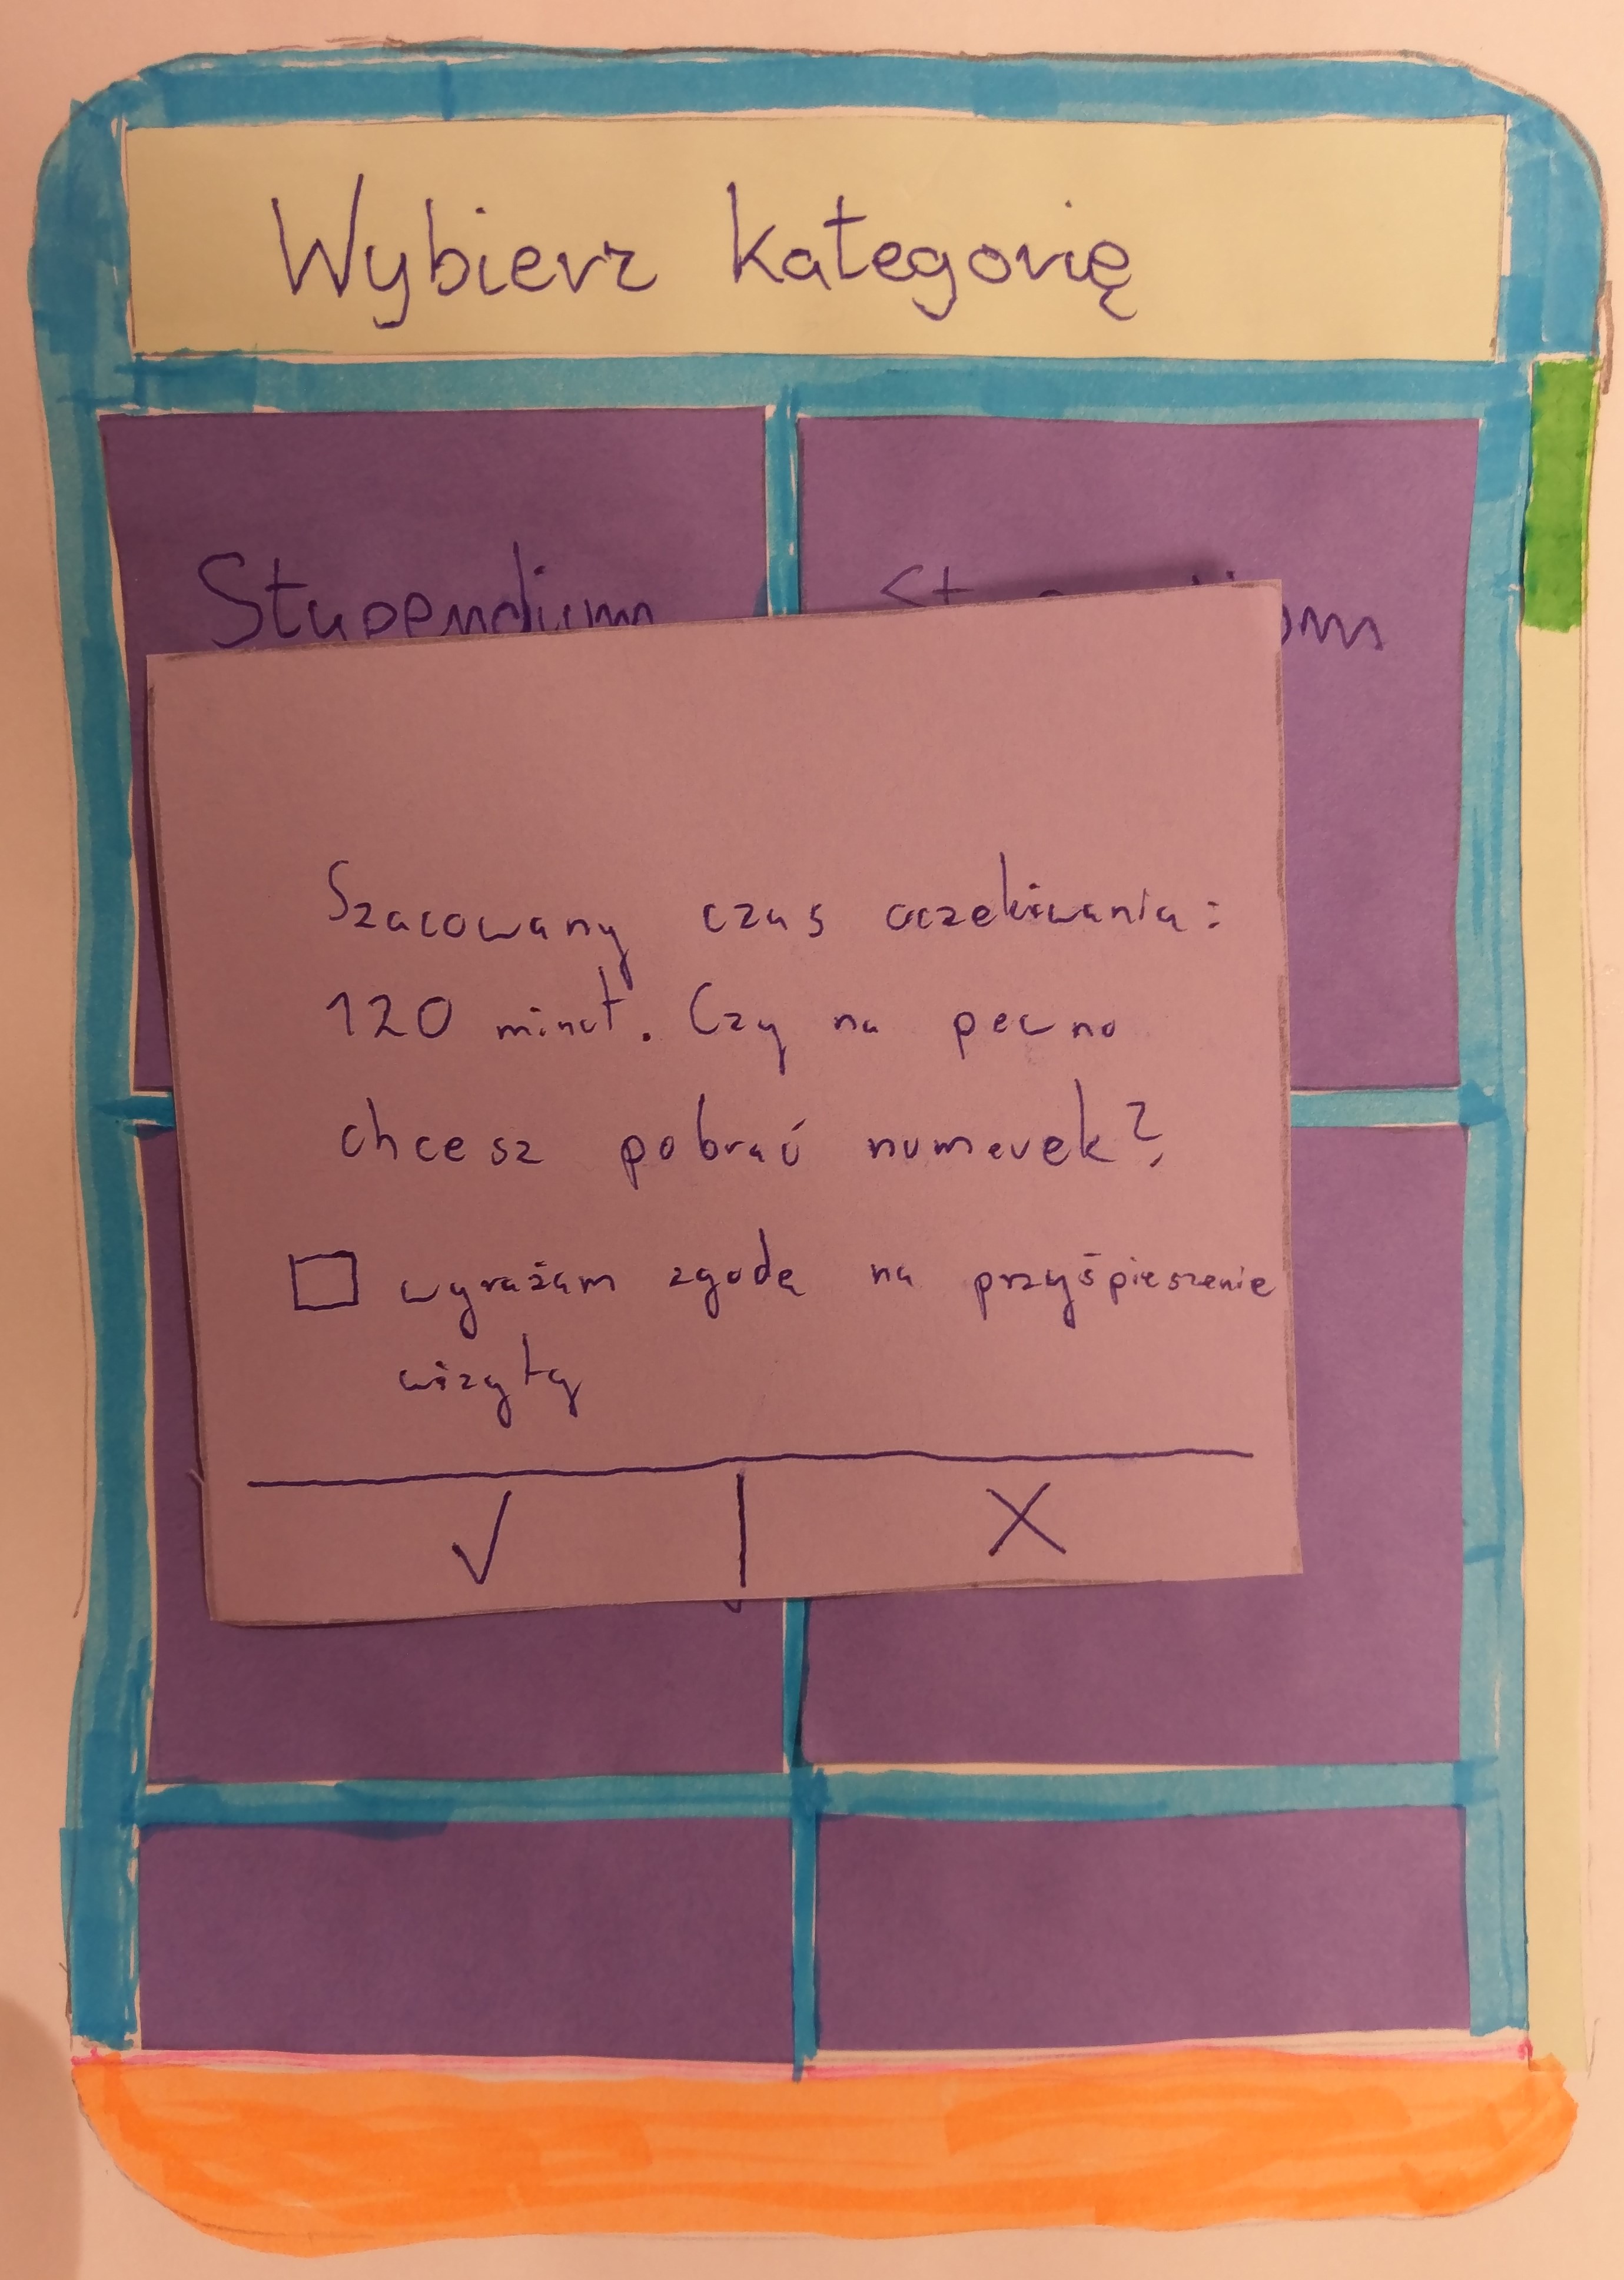 Wybierz kategorię
Stypendium
Szacowany czas oczekiwania:
120 minut. Czy na pewno
chcesz pobrać numerek?
wyrażam zgodę na przyśpieszenie
wizyty